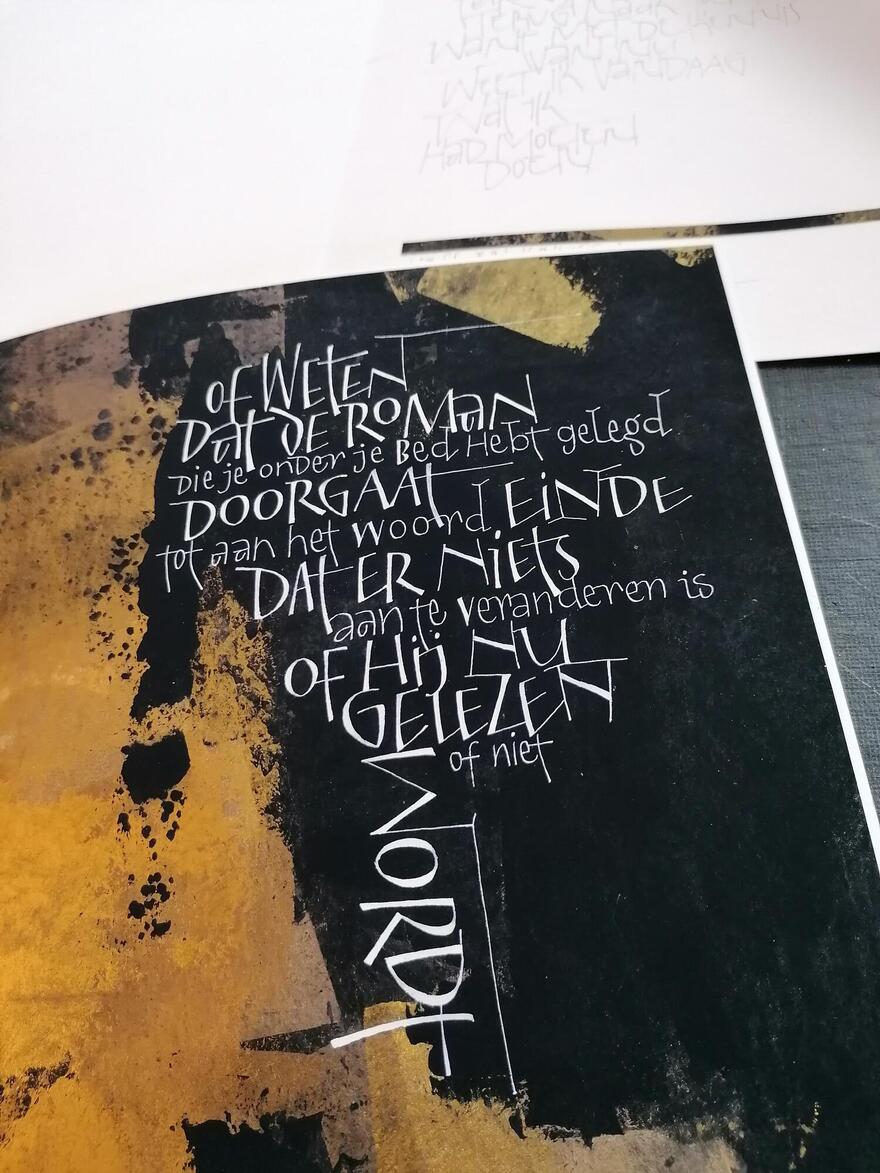 WANT MET DE KENNIS
VAN NU
WEET IK VANDAAG
WAT IK
HAD MOETEN
DOEN
OF WETEN
Dat DE ROMan
Die je onder je Bed Hebt gelegd
DOORGAAT
tot aan het woord EiNDE
DAT ER NiEts
aan te veranderen is
OF Hij NU
GELEZEN
of niet
WORDt